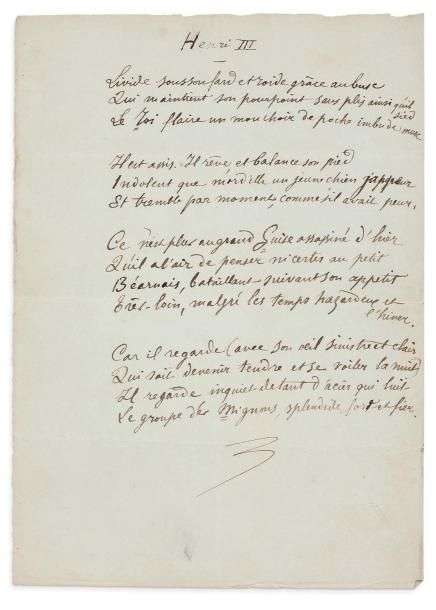 Henri III
Livide sous son fard et roide grâce au busc
Qui maintient son pourpoint sans plis ainsi qu'il sied
Le Roi flaire un mouchoir de poche imbu de musc
Il est assis. Il rêve et balance son pied
Indolent que mordille un jeune chien jappeur
Et tremble par moment, comme s'il avait peur.
Ce n'est plus au grand Guise assassiné d'hier
Qu'il a l'air de penser ni certes au petit
Béarnais, bataillant suivant son appetit
Très-loin, malgré les temps hazardeux et
l'hiver.
Car il regarde (avec son œil sinistre et clair
Qui sait devenir tendre et se voiler la nuit)
Il regarde inquiet de tant d'acier qui luit
Le groupe des Mignons splendide et fier.